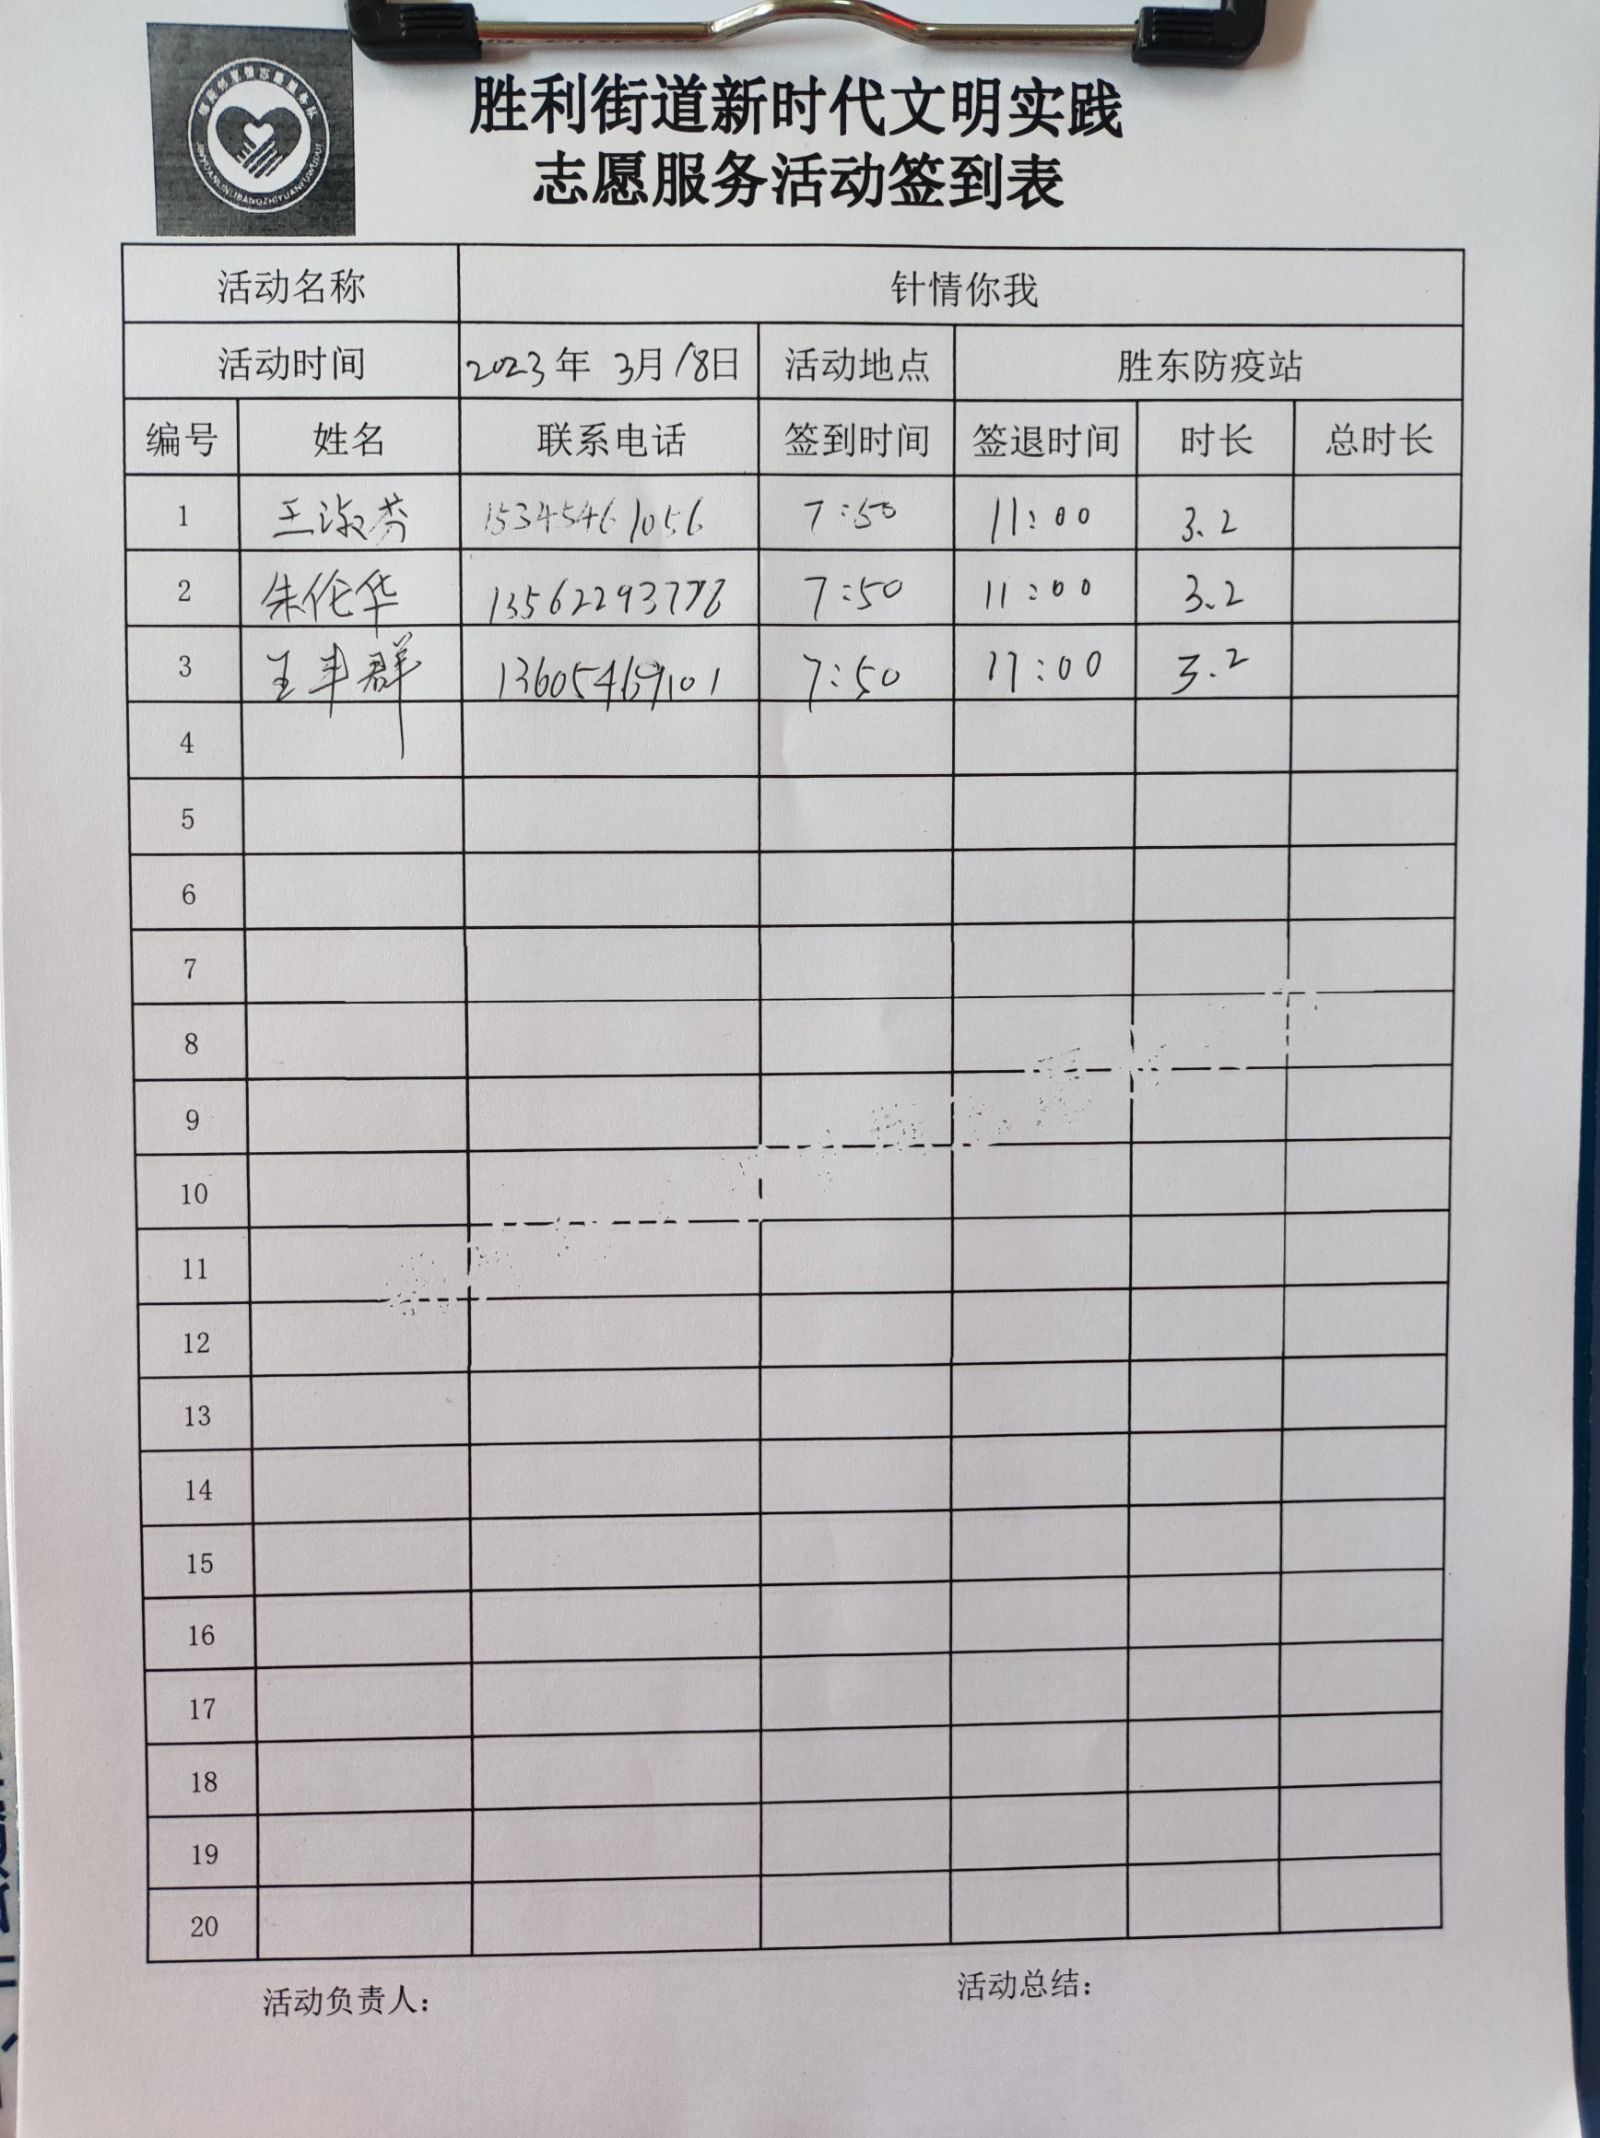 胜利街道新时代文明实践
志愿服务活动签到表
活动名称 针情你我
活动时间 2023年 3月18日 活动地点 胜东防疫站
编号 姓名 联系电话 签到时间 签退时间 时长 总时长
1 王淑芬 15345461056 7:50 11:00 3.2
2 朱伦华 7:50 11:00 3.2
3 王丰群 7:50 11:00 3.2
4
5
6
7
8
9
10
11
12
13
14
15
16
17
18
19
20
活动负责人： 活动总结：